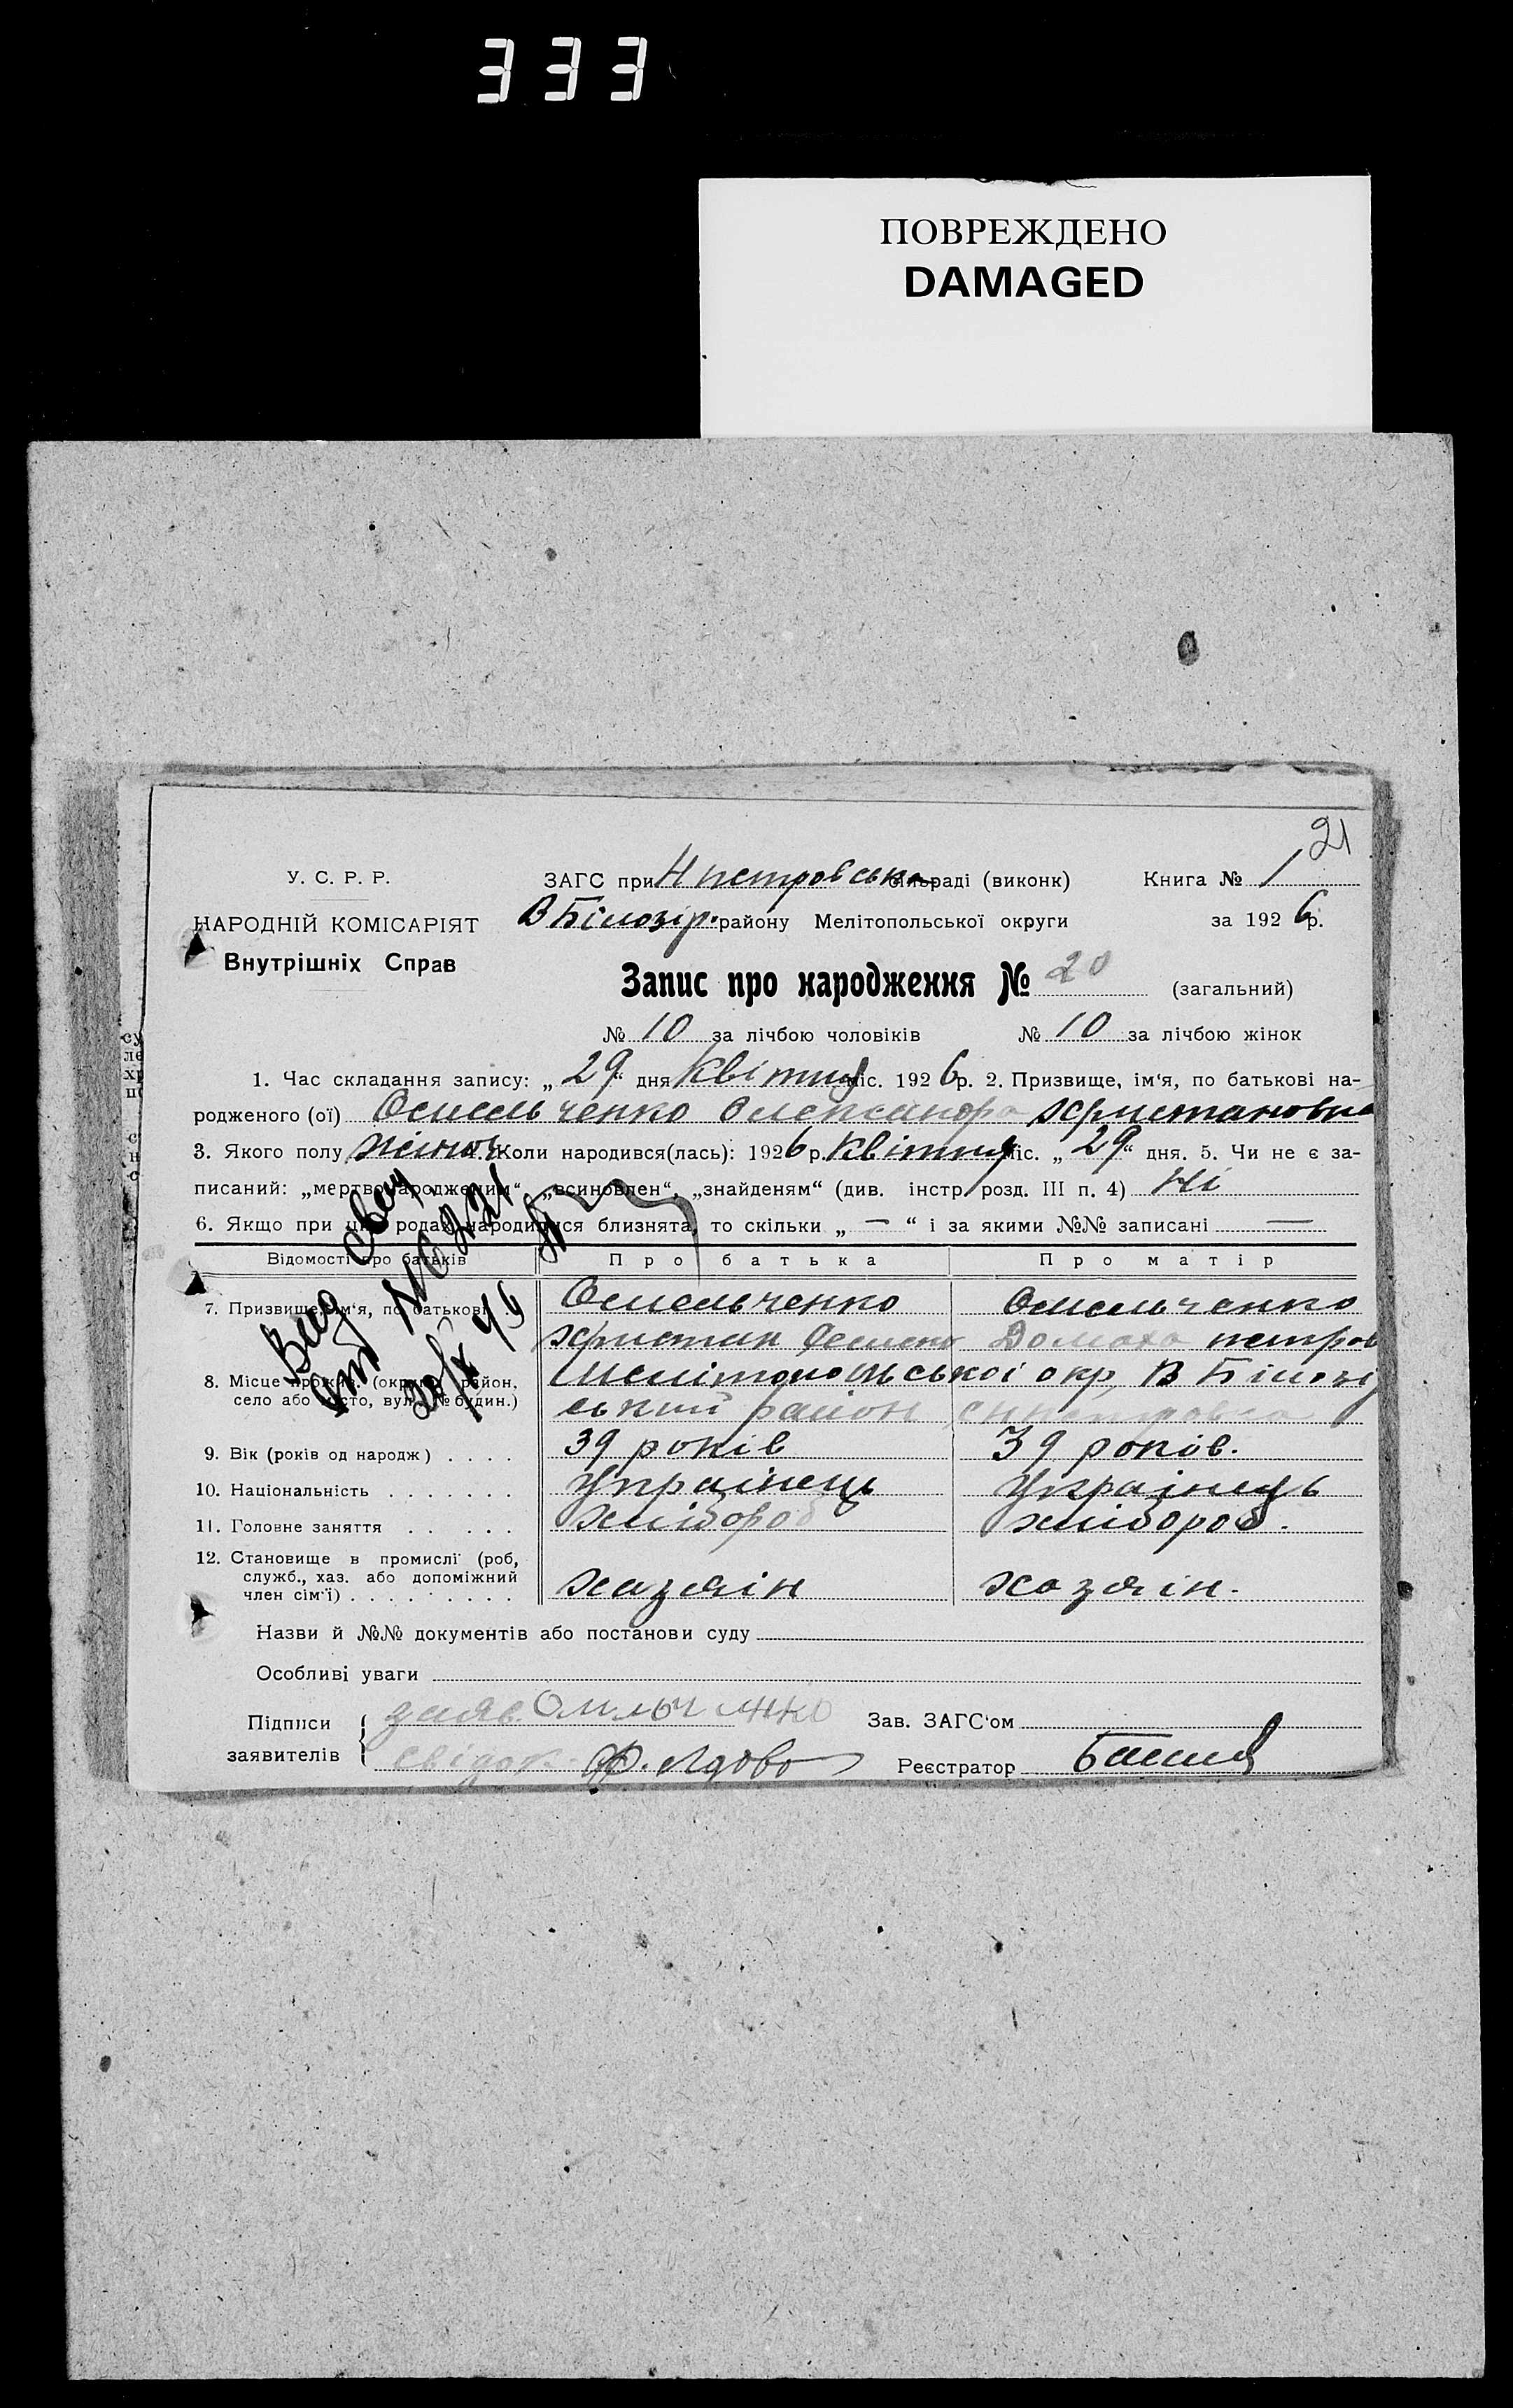 333
ПОВРЕЖДЕНО
DAMAGED
21
У. С. Р. Р.
ЗАГС при Н петровськ раді (виконк) Книга № 1
НАРОДНІЙ КОМІСАРІЯТ
В Білозір. району Мелітопольської округи за 1926 р.
Внутрішніх Справ
Запис про народження № 20 (загальний)
№ 10 за лічбою чоловіків № 10 за лічбою жінок
1. Час складання запису: „29“ дня Квітня міс. 1926 р. 2. Призвище, ім‘я, по батькові на-
родженого (ої) Омельченко Олександра Христановна
3. Якого полу жіноч. Коли народився(лась): 1926 р. Квітня міс. „29“ дня. 5. Чи не є за-
писаний: „мертвонародженим“, „всиновлен“, „знайденям“ (див. інстр. розд. III п. 4) Ні
6. Якщо при цих родах народилися близнята, то скільки „ — “ і за якими №№ записані —
Відомості про батьків Про батька Про матір
7. Призвище, ім‘я, по батькові Омельченко Омельченко
Христан Домаха петров
8. Місце прожив. (округа, район, Мелітопольської окр, В Білозі
село або місто, вул., № будин.) ський район
9. Вік (років од народж) . . . . 39 років 39 років.
10. Національність . . . . . . . Українець Українець
11. Головне заняття . . . . . Хлібороб Хлібороб.
12. Становище в промислі (роб, служб., хаз. або допоміжний член сім‘ї) . . . . . . . . . хазяін хазяін.
Выд свид
№ 0221
Назви й №№ документів або постанови суду
Особливі уваги
Підписи заявителів
заяв.
свідок Ф.
Зав. ЗАГС‘ом
Реєстратор